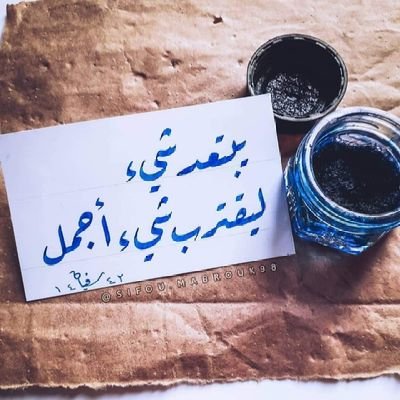 يبتعد شيء
ليقترب شيء أجمل
@SIFOU_MABROUK98